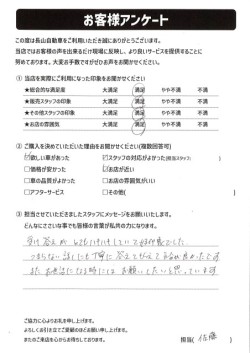 お客様アンケート
この度は長山自動車をご利用いただき誠にありがとうございます。
当店ではお客様の声を出来るだけ現場に反映し、より良いサービスを提供することに
努めております。大変お手数ですがぜひお声をお聞かせください。
① 当店を実際にご利用になった印象をお聞かせください
★総合的な満足度 大満足 満足 やや不満 不満
★販売スタッフの印象 大満足 満足 やや不満 不満
★その他スタッフの印象 大満足 満足 やや不満 不満
★お店の雰囲気 大満足 満足 やや不満 不満
② ご購入を決めていただいた理由をお聞かせください(複数回答可)
☑欲しい車があった ☑スタッフの対応がよかった(担当スタッフ: )
□価格が安かった ☑お店が近い
□車の品質がよかった □お店の雰囲気がいい
□アフターサービス □その他( )
③ 担当させていただきましたスタッフにメッセージをお願いいたします。
どんなにささいな事でも皆様の言葉が私共の力になります。
受け答えが とてもハキハキしていて好印象でした。
つまらない話しにも丁寧に答えて
また お世話になる時には お願いしたいと思っています
ご協力に心よりお礼を申し上げます。
よろしくお引き立てご愛顧のほどお願い申し上げます。
またのご来店を心からお待ちしております。
担当( 佐藤 )